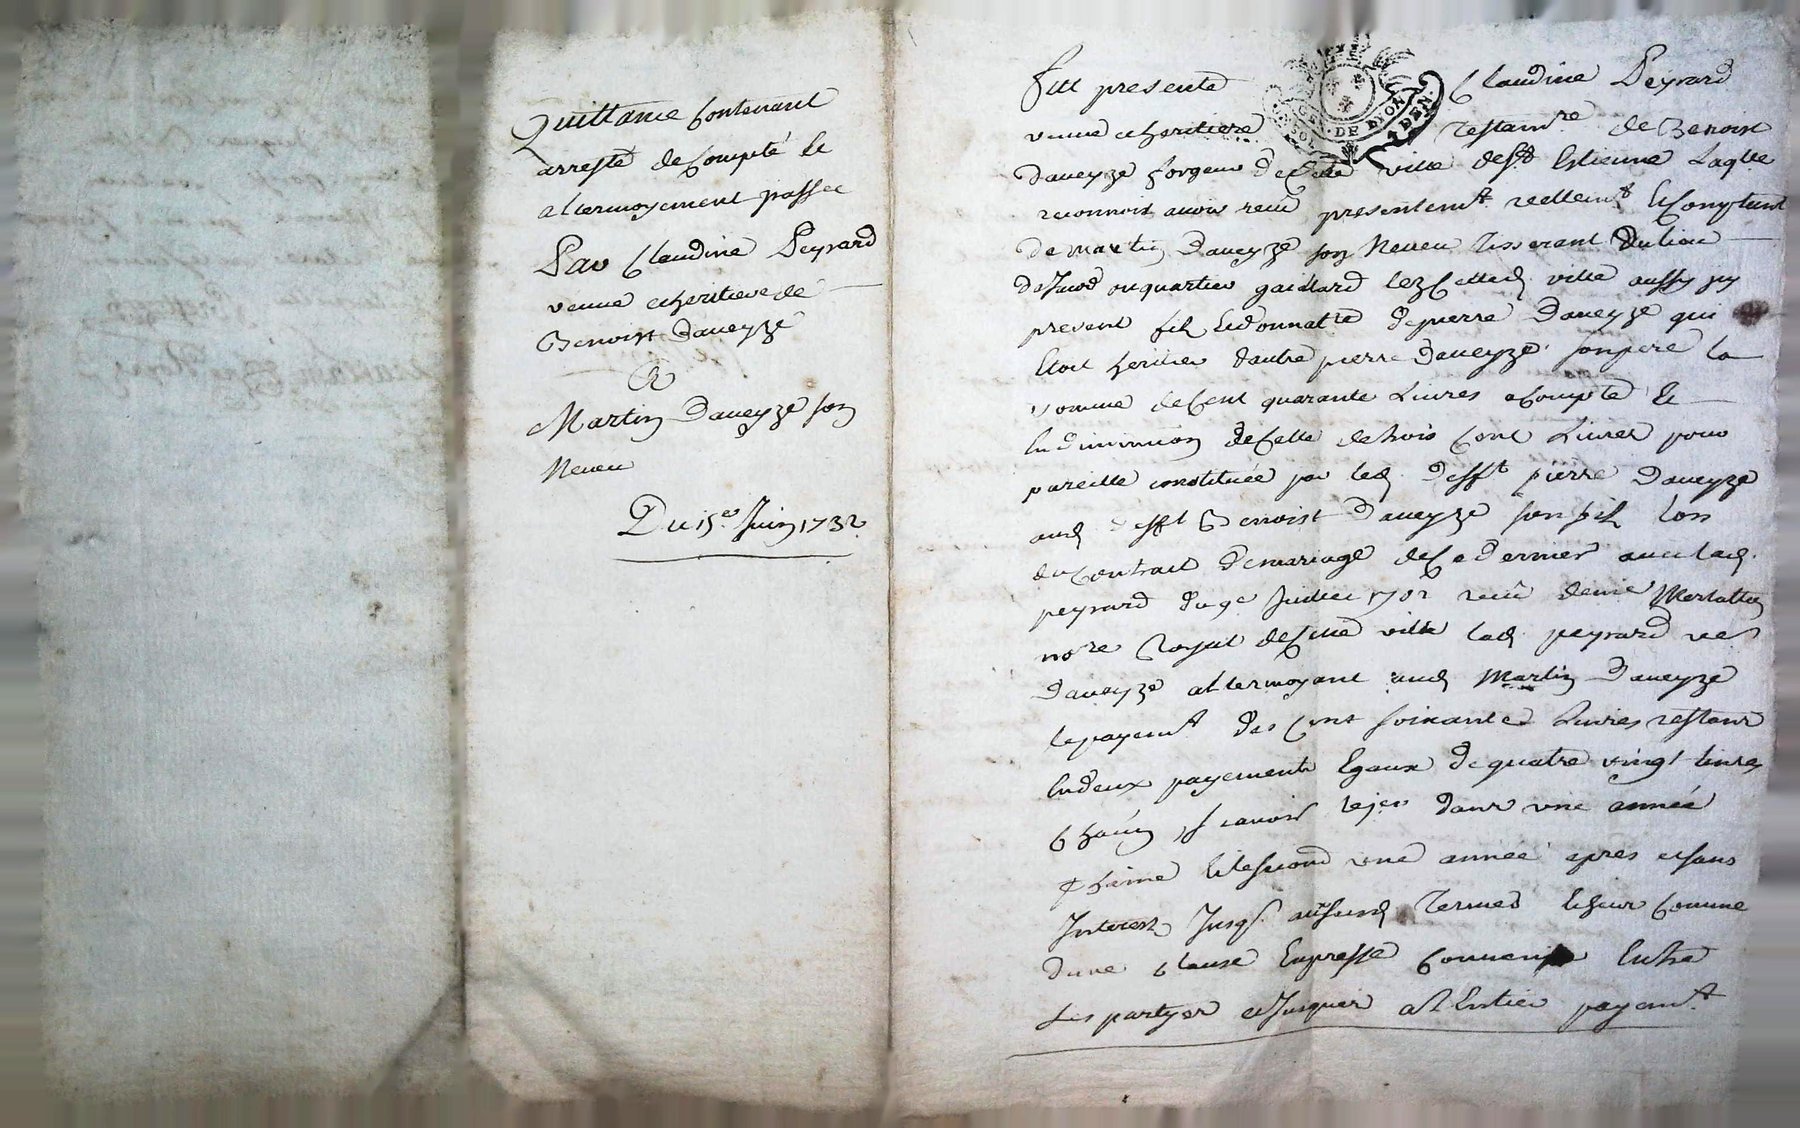 Quittance Contenant
arresté de Compte Et
attermoyement passee
Par Claudine Peyrard
veuve et heritiere de
Benoist Daveyze
Et
Martin Daveyze son
Neveu
Du 15e. Juin 1732
Fut presente Claudine Peyrard
GEN. DE LYON
SOL DEN.
veuve et heritiere Testamre de Benoist
Daveyze forgeur de Cette ville de St Estienne Laqlle
reconnoit avoir receu presentemt reellemt Et Comptant
de Martin Daveyze son Neveu Tisserant du lieu
ou quartier gaillard lez Cetted ville aussy
present fils Et donnatre de pierre Daveyze qui
Etoit heritier dautre pierre Daveyze son pere la
somme de Cent quarante Livres a Compte Et
En diminuon de Celle de trois Cent Livres pour
pareille constituée par led defft pierre Daveyze
aud defft Benoist Daveyze son fils lors
du Contrait de mariage de Ce dernier avec lad.
peyrard du 9e Juillet 1702 receu de me
nore Royal de Cette ville lad peyrard ve
Daveyze attermoyant aud Martin Daveyze
le payemt des Cent soixante Livres restant
En deux payements Egaux de quatre vingt livres
Chacun, scavoir le jer dans une année
Et le second une année apres et sans
Interest Jusqs Termes Comme
dune Clause Expresse Convenüe Entre
Les partyes et Jusques a lEntier payemt